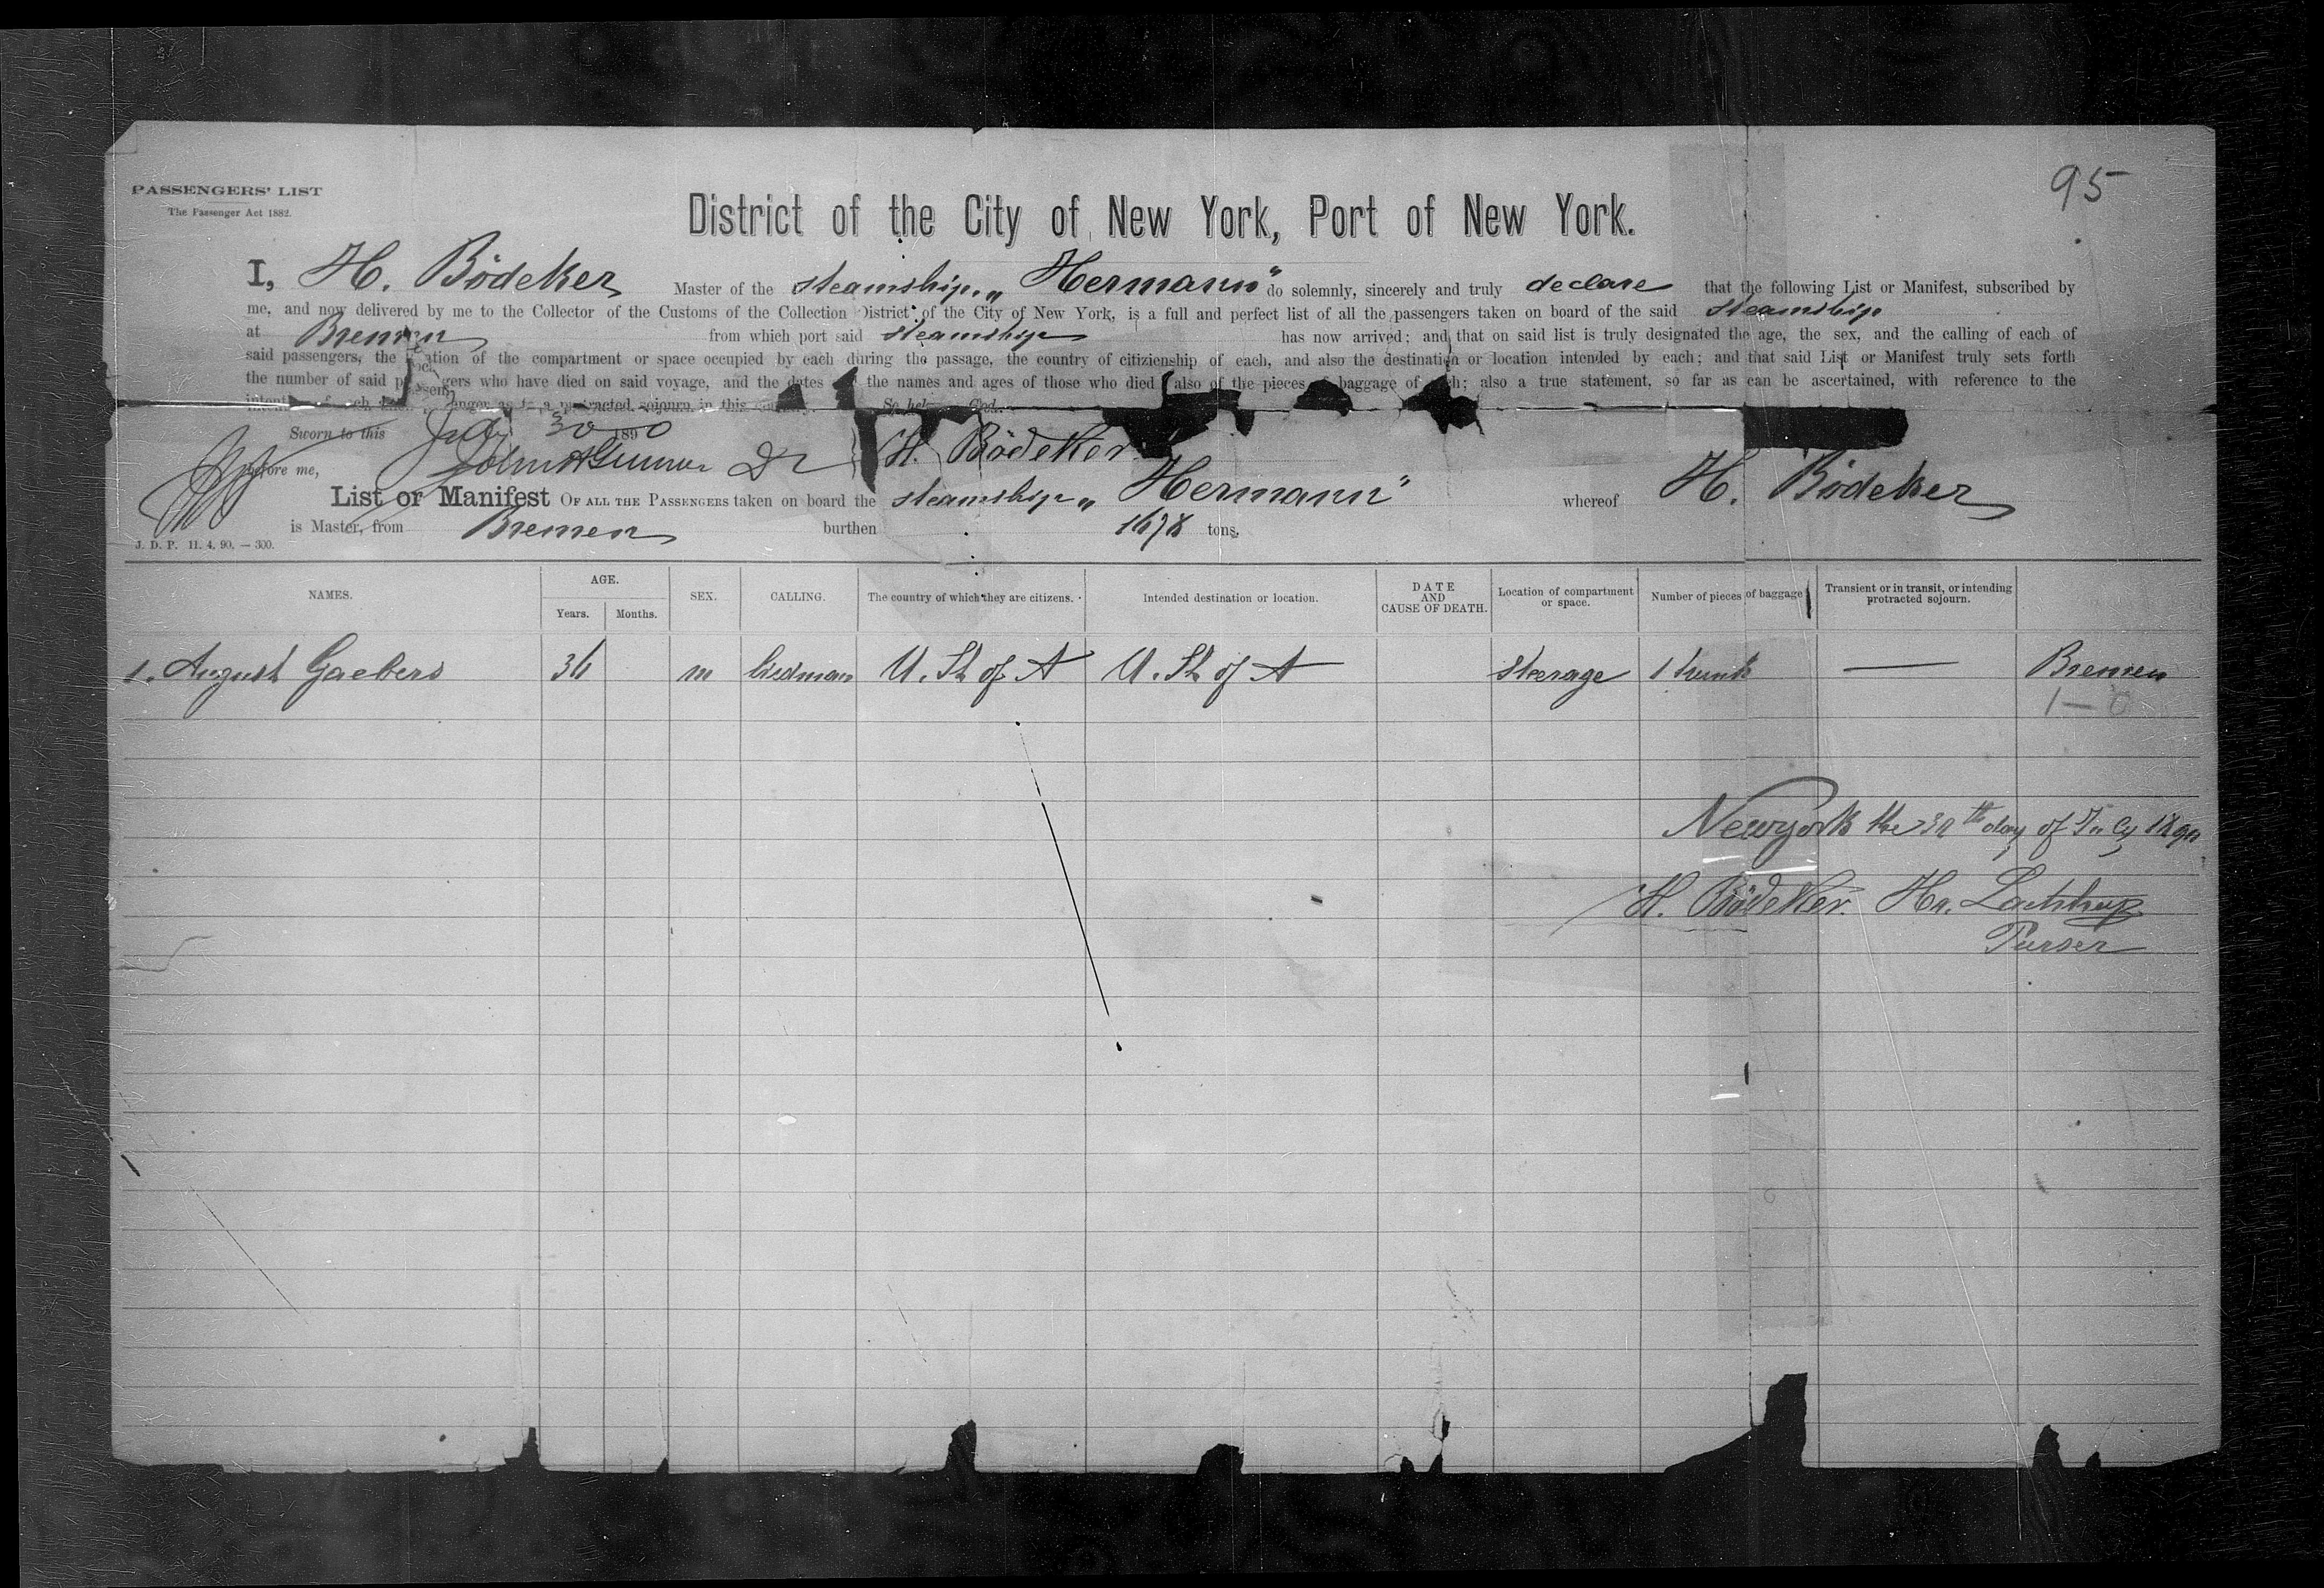 95
PASSENGERS' LIST
The Passenger Act 1882.
District of the City of New York, Port of New York.
I, H. Bödeker Master of the steamship „Hermann“ do solemnly, sincerely and truly declare that the following List or Manifest, subscribed by
me, and now delivered by me to the Collector of the Customs of the Collection District of the City of New York, is a full and perfect list of all the passengers taken on board of the said steamship
at Bremen from which port said steamship has now arrived; and that on said list is truly designated the age, the sex, and the calling of each of
said passengers, the location of the compartment or space occupied by each during the passage, the country of citizienship of each, and also the destination or location intended by each; and that said List or Manifest truly sets forth
the number of said passengers who have died on said voyage, and the dates the names and ages of those who died also of the pieces baggage of also a true statement, so far as can be ascertained, with reference to the
as to a protracted sojourn in this country. So God.
Sworn to this July 30 1890
before me, H. Bödeker
List or Manifest OF ALL THE PASSENGERS taken on board the steamship „Hermann“ whereof H. Bödeker
is Master, from Bremen burthen 1678 tons.
J. D. P. 11. 4. 90. — 300.
NAMES. AGE. Years. Months. SEX. CALLING. The country of which they are citizens. Intended destination or location. DATE AND CAUSE OF DEATH. Location of compartment or space. Number of pieces of baggage Transient or in transit, or intending protracted sojourn.
1. August Gaebers 36 m U. St. of A U. St. of A steerage 1 trunk — Bremen
1 — 0
Newyork the 30th day of July 1890
H. Bödeker. Hr.
Purser